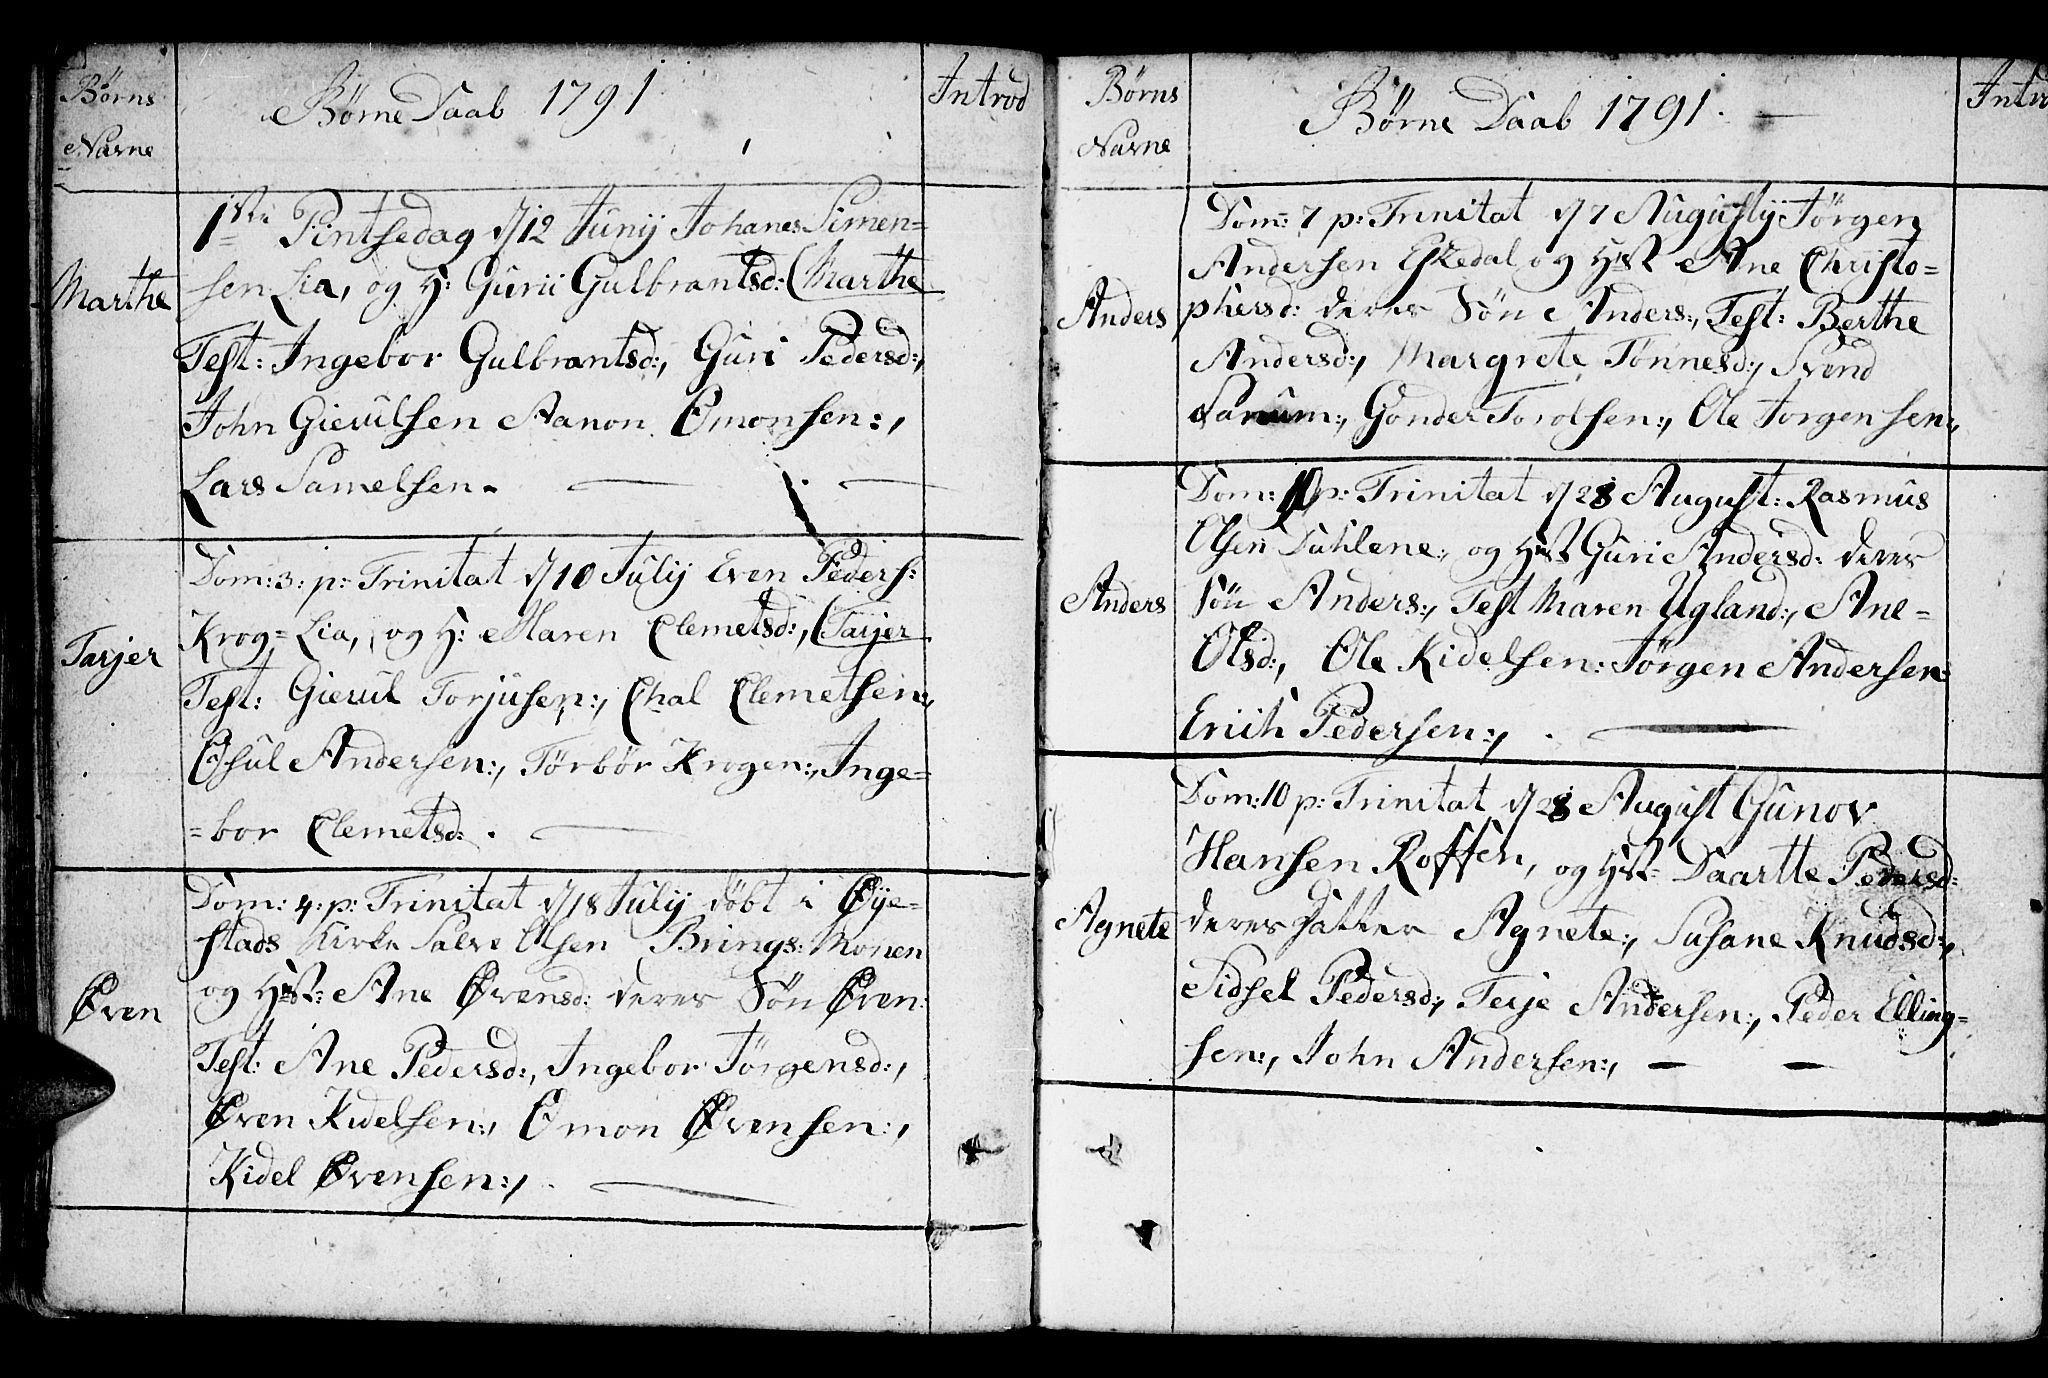 Børns
Navne
Børne Daab 1791
Introd
Marthe
1ste Pintsedag d/12 Junij Johanes Simen=
sen Lia, og H: Gurii Gulbrantsd: (Marthe
Test: Ingebor Gulbrantsd:, Guri Pedersd:,
John Gierulsen Aanon Omonsen:,
Lars Samelsen.
Tarjer
Dom: 3: p: Trinitat d/10 Julij Even Peders:
Krog=Lia, og H: Maren Clemetsd:, (Tarjer
Test: Gierul Torjusen:, Chal Clemetsen:,
Osul Andersen:, Törbör Krogen:, Inge=
=bor Clemetsd:.
Øven
Dom: 4: p: Trinitat d/18 Julij döbt i Øye=
stads Kirke Salve Olsen Brings: Monen
og Hst: Ane Øvensd: deres Sön Øven:
Test: Ane Pedersd:, Ingebor Jörgensd:,
Øven Kidelsen:, Omon Øvensen:,
Kidel Øvensen:,
Børns
Navne
Børne Daab 1791.
Introd
Anders
Dom: 7 p: Trinitat d/7 Augustij Jörgen
Andersen Eskedal og Hst Ane Christo=
phersd: deres Sön Anders:, Test: Berthe
Andersd:, Margrete Tönnesd:, Svend
Sanum:, Gonder Torolsen:, Ole Jorgensen:,
Anders
Dom: 10 p: Trinitat d/28 August: Rasmus
Olsen Dahlene:, og Hst Guri Andersd: deres
Sön Anders:, Test Maren Ugland:, Ane=
Olsd:, Ole Kidelsen: Jörgen Andersen:
Erich Pedersen:,
Agnete
Dom: 10 p: Trinitat d/28 August Gunov
Hansen Rossen, og Hst Daartte Pedersd:
deres Datter Agnete:, Susane Knudsd:,
Sidsel Pedersd:, Terje Andersen:, Peder Elling=
sen:, John Andersen:,